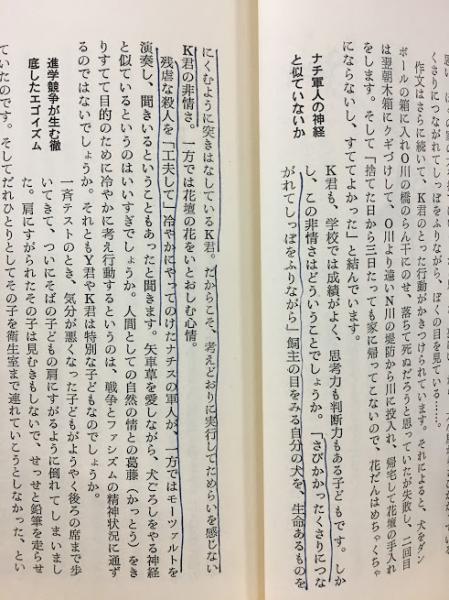 くさりにつながれてしっぽをふりながら、ぼくの目を見ている……。
作文はさらに続いて、K君のとった行動がかきつけられています。それによると、犬をダン
ボールの箱に入れO川の橋のらん干にのせ、落ちて死ぬだろうと思っていたが失敗し、二回目
は翌朝木箱にクギづけして、O川より遠いN川の堤防から川に投入れ、帰宅して花壇の手入れ
をします。そして「捨てた日から三日たっても家に帰ってこないので、花だんはめちゃくちゃ
にならないし、すててよかった」と結んでいます。
ナチ軍人の神経
と似ていないか
K君も、学校では成績がよく、思考力も判断力もある子どもです。しか
し、この非情さはどういうことでしょうか。「さびかかったくさりにつな
がれてしっぽをふりながら」飼主の目をみる自分の犬を、生命あるものを
にくむように突きはなしているK君。だからこそ、考えどおりに実行してためらいを感じない
K君の非情さ。一方では花壇の花をいとおしむ心情。
残虐な殺人を「工夫して」冷ややかにやってのけたナチスの軍人が、一方ではモーツァルトを
演奏し、聞きいるということもあったと聞きます。矢車草を愛しながら、犬ごろしをやる神経
と似ているというのはいいすぎでしょうか。人間としての自然の情との葛藤（かっとう）をき
りすてて目的のために冷やかに考え行動するというのは、戦争とファシズムの精神状況に通ず
るのではないでしょうか。それともY君やK君は特別な子どもなのでしょうか。
進学競争が生む徹
底したエゴイズム
一斉テストのとき、気分が悪くなった子どもがようやく後ろの席まで歩
いてきて、ついにそばの子どもの肩にすがるように倒れてしまいまし
た。肩にすがられたその子は見むきもしないで、せっせと鉛筆を走らせ
ていたのです。そしてだれひとりとしてその子を衛生室まで連れていこうとしなかった、とい